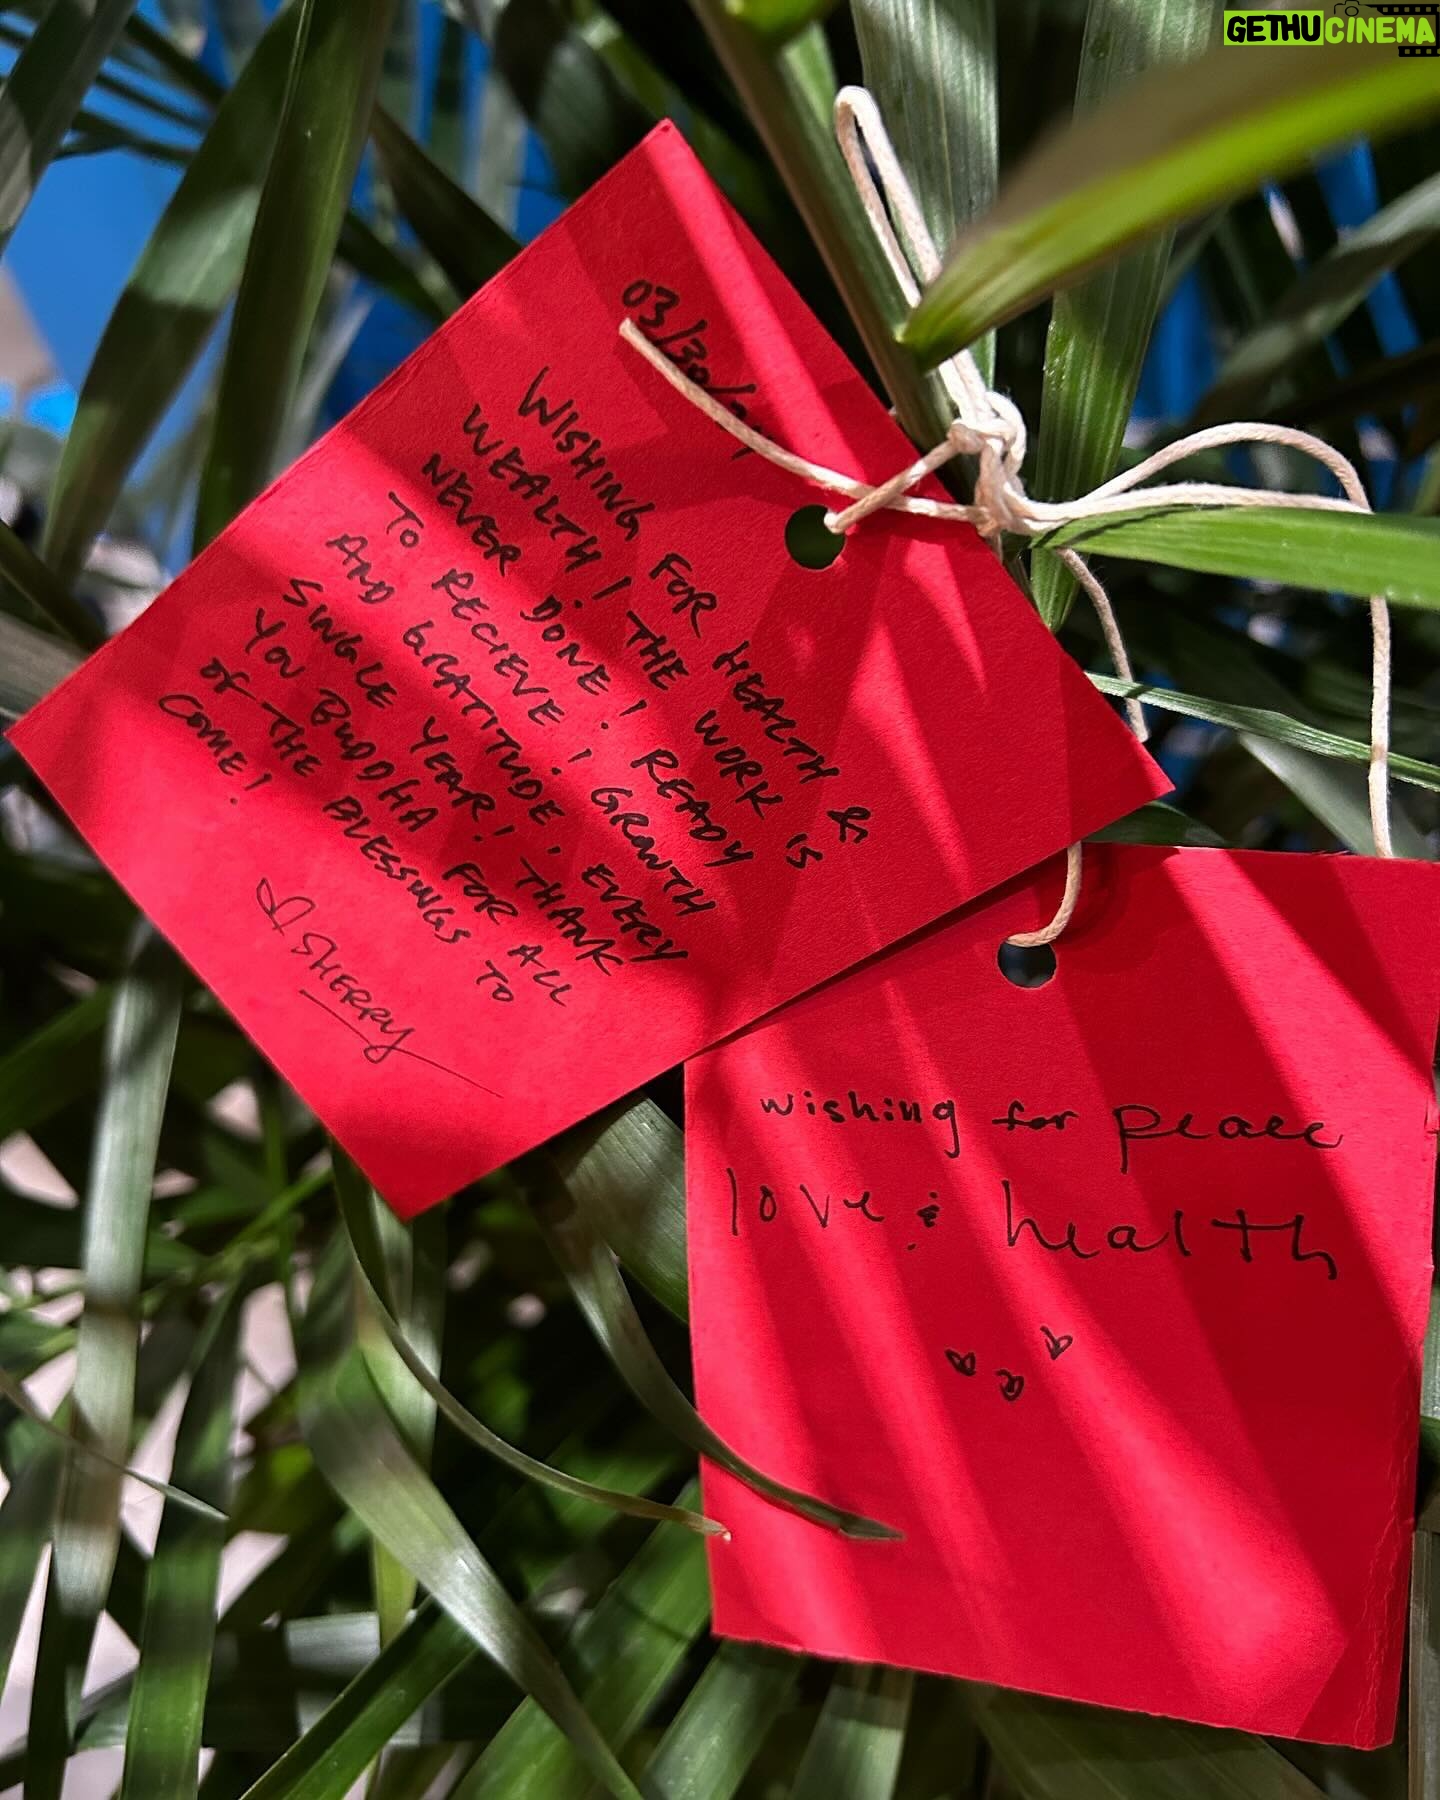 GETHUCINEMA
03/30/
WISHING FOR HEALTH &
WEALTH! THE WORK IS
NEVER DONE! READY
TO RECIEVE! GROWTH
AND GRATITUDE, EVERY
SINGLE YEAR! THANK
YOU BUDDHA FOR ALL
OF THE BLESSINGS TO
COME!
SHERRY
wishing for peace
love & health